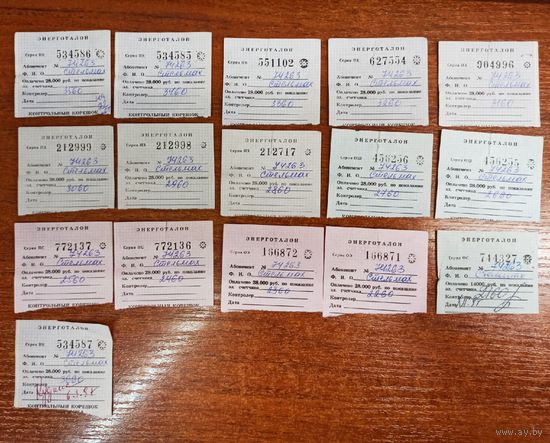 ЭНЕРГОТАЛОН
534586
Абонемент 74263
Ф. И. О. Стельмах
Оплачено 28.000 руб. по показание
эл. счетчика
3560
Контролер
Дата
КОНТРОЛЬНЫЙ КОРЕШОК
ЭНЕРГОТАЛОН
534585
Абонемент 74263
Ф. И. О. Стельмах
Оплачено 28.000 руб. по показание
эл. счетчика
3460
Контролер
Дата
КОНТРОЛЬНЫЙ КОРЕШОК
ЭНЕРГОТАЛОН
551102
Абонемент 74263
Ф. И. О. Стельмах
Оплачено 28.000 руб. по показание
эл. счетчика
3360
Контролер
Дата
ЭНЕРГОТАЛОН
627554
Абонемент 74263
Ф. И. О. Стельмах
Оплачено 28.000 руб. по показание
эл. счетчика
3260
Контролер
Дата
ЭНЕРГОТАЛОН
904996
Абонемент 74263
Ф. И. О. Стельмах
Оплачено 28.000 руб. по показание
эл. счетчика
3160
Контролер
Дата
ЭНЕРГОТАЛОН
212999
Абонемент 74263
Ф. И. О. Стельмах
Оплачено 28.000 руб. по показание
эл. счетчика
3060
Контролер
Дата
ЭНЕРГОТАЛОН
212998
Абонемент 74263
Ф. И. О. Стельмах
Оплачено 28.000 руб. по показание
эл. счетчика
2960
Контролер
Дата
ЭНЕРГОТАЛОН
212717
Абонемент 74263
Ф. И. О. Стельмах
Оплачено 28.000 руб. по показание
эл. счетчика
2860
Контролер
Дата
ЭНЕРГОТАЛОН
456256
Абонемент 74263
Ф. И. О. Стельмах
Оплачено 28.000 руб. по показание
эл. счетчика
2760
Контролер
Дата
ЭНЕРГОТАЛОН
456255
Абонемент 74263
Ф. И. О. Стельмах
Оплачено 28.000 руб. по показание
эл. счетчика
Контролер
Дата
ЭНЕРГОТАЛОН
772137
Абонемент 74263
Ф. И. О. Стельмах
Оплачено 28.000 руб. по показание
эл. счетчика
2560
Контролер
Дата
КОНТРОЛЬНЫЙ КОРЕШОК
ЭНЕРГОТАЛОН
772136
Абонемент 74263
Ф. И. О. Стельмах
Оплачено 28.000 руб. по показание
эл. счетчика
2460
Контролер
Дата
КОНТРОЛЬНЫЙ КОРЕШОК
ЭНЕРГОТАЛОН
166872
Абонемент 74263
Ф. И. О. Стельмах
Оплачено 28.000 руб. по показание
эл. счетчика
2360
Контролер
Дата
ЭНЕРГОТАЛОН
166871
Абонемент 74263
Ф. И. О. Стельмах
Оплачено 28.000 руб. по показание
эл. счетчика
2260
Контролер
Дата
ЭНЕРГОТАЛОН
711327
Абонемент 74263
Ф. И. О. Стельмах
Оплачено 14000 руб. по показание
эл. счетчика
Контролер
Дата
ЭНЕРГОТАЛОН
534587
Абонемент 74263
Ф. И. О. Стельмах
Оплачено 28.000 руб. по показание
эл. счетчика
3660
Контролер
Дата
КОНТРОЛЬНЫЙ КОРЕШОК
www.ay.by